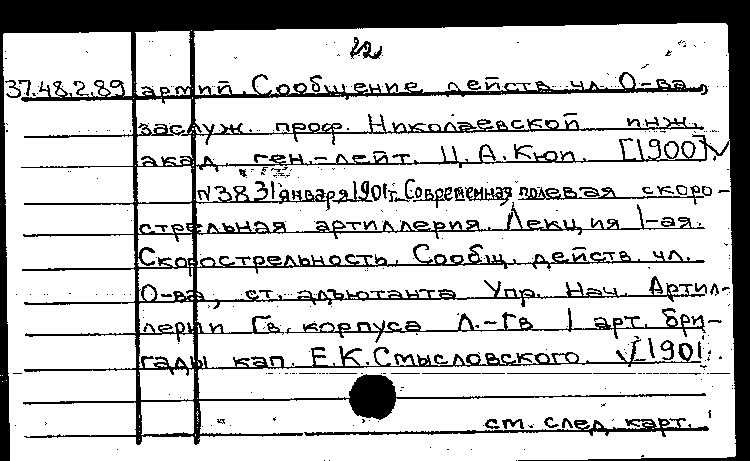 22
37.48.2.89 армий. Сообщение действ. чл. О-ва,
заслуж. проф. Николаевской инж.
акад. ген.-лейт. Ц.А.Кюи. [1900]
N 38 31 января 1901 г. Современная полевая скоро-
стрельная артиллерия. Лекция I-ая.
Скорострельность. Сообщ. действ. чл.
О-ва, ст. адъютанта Упр. Нач. Артил-
лерии Гв. корпуса Л.-Гв 1 арт. бри-
гады кап. Е.К.Смысловского. [1901].
см. след. карт.